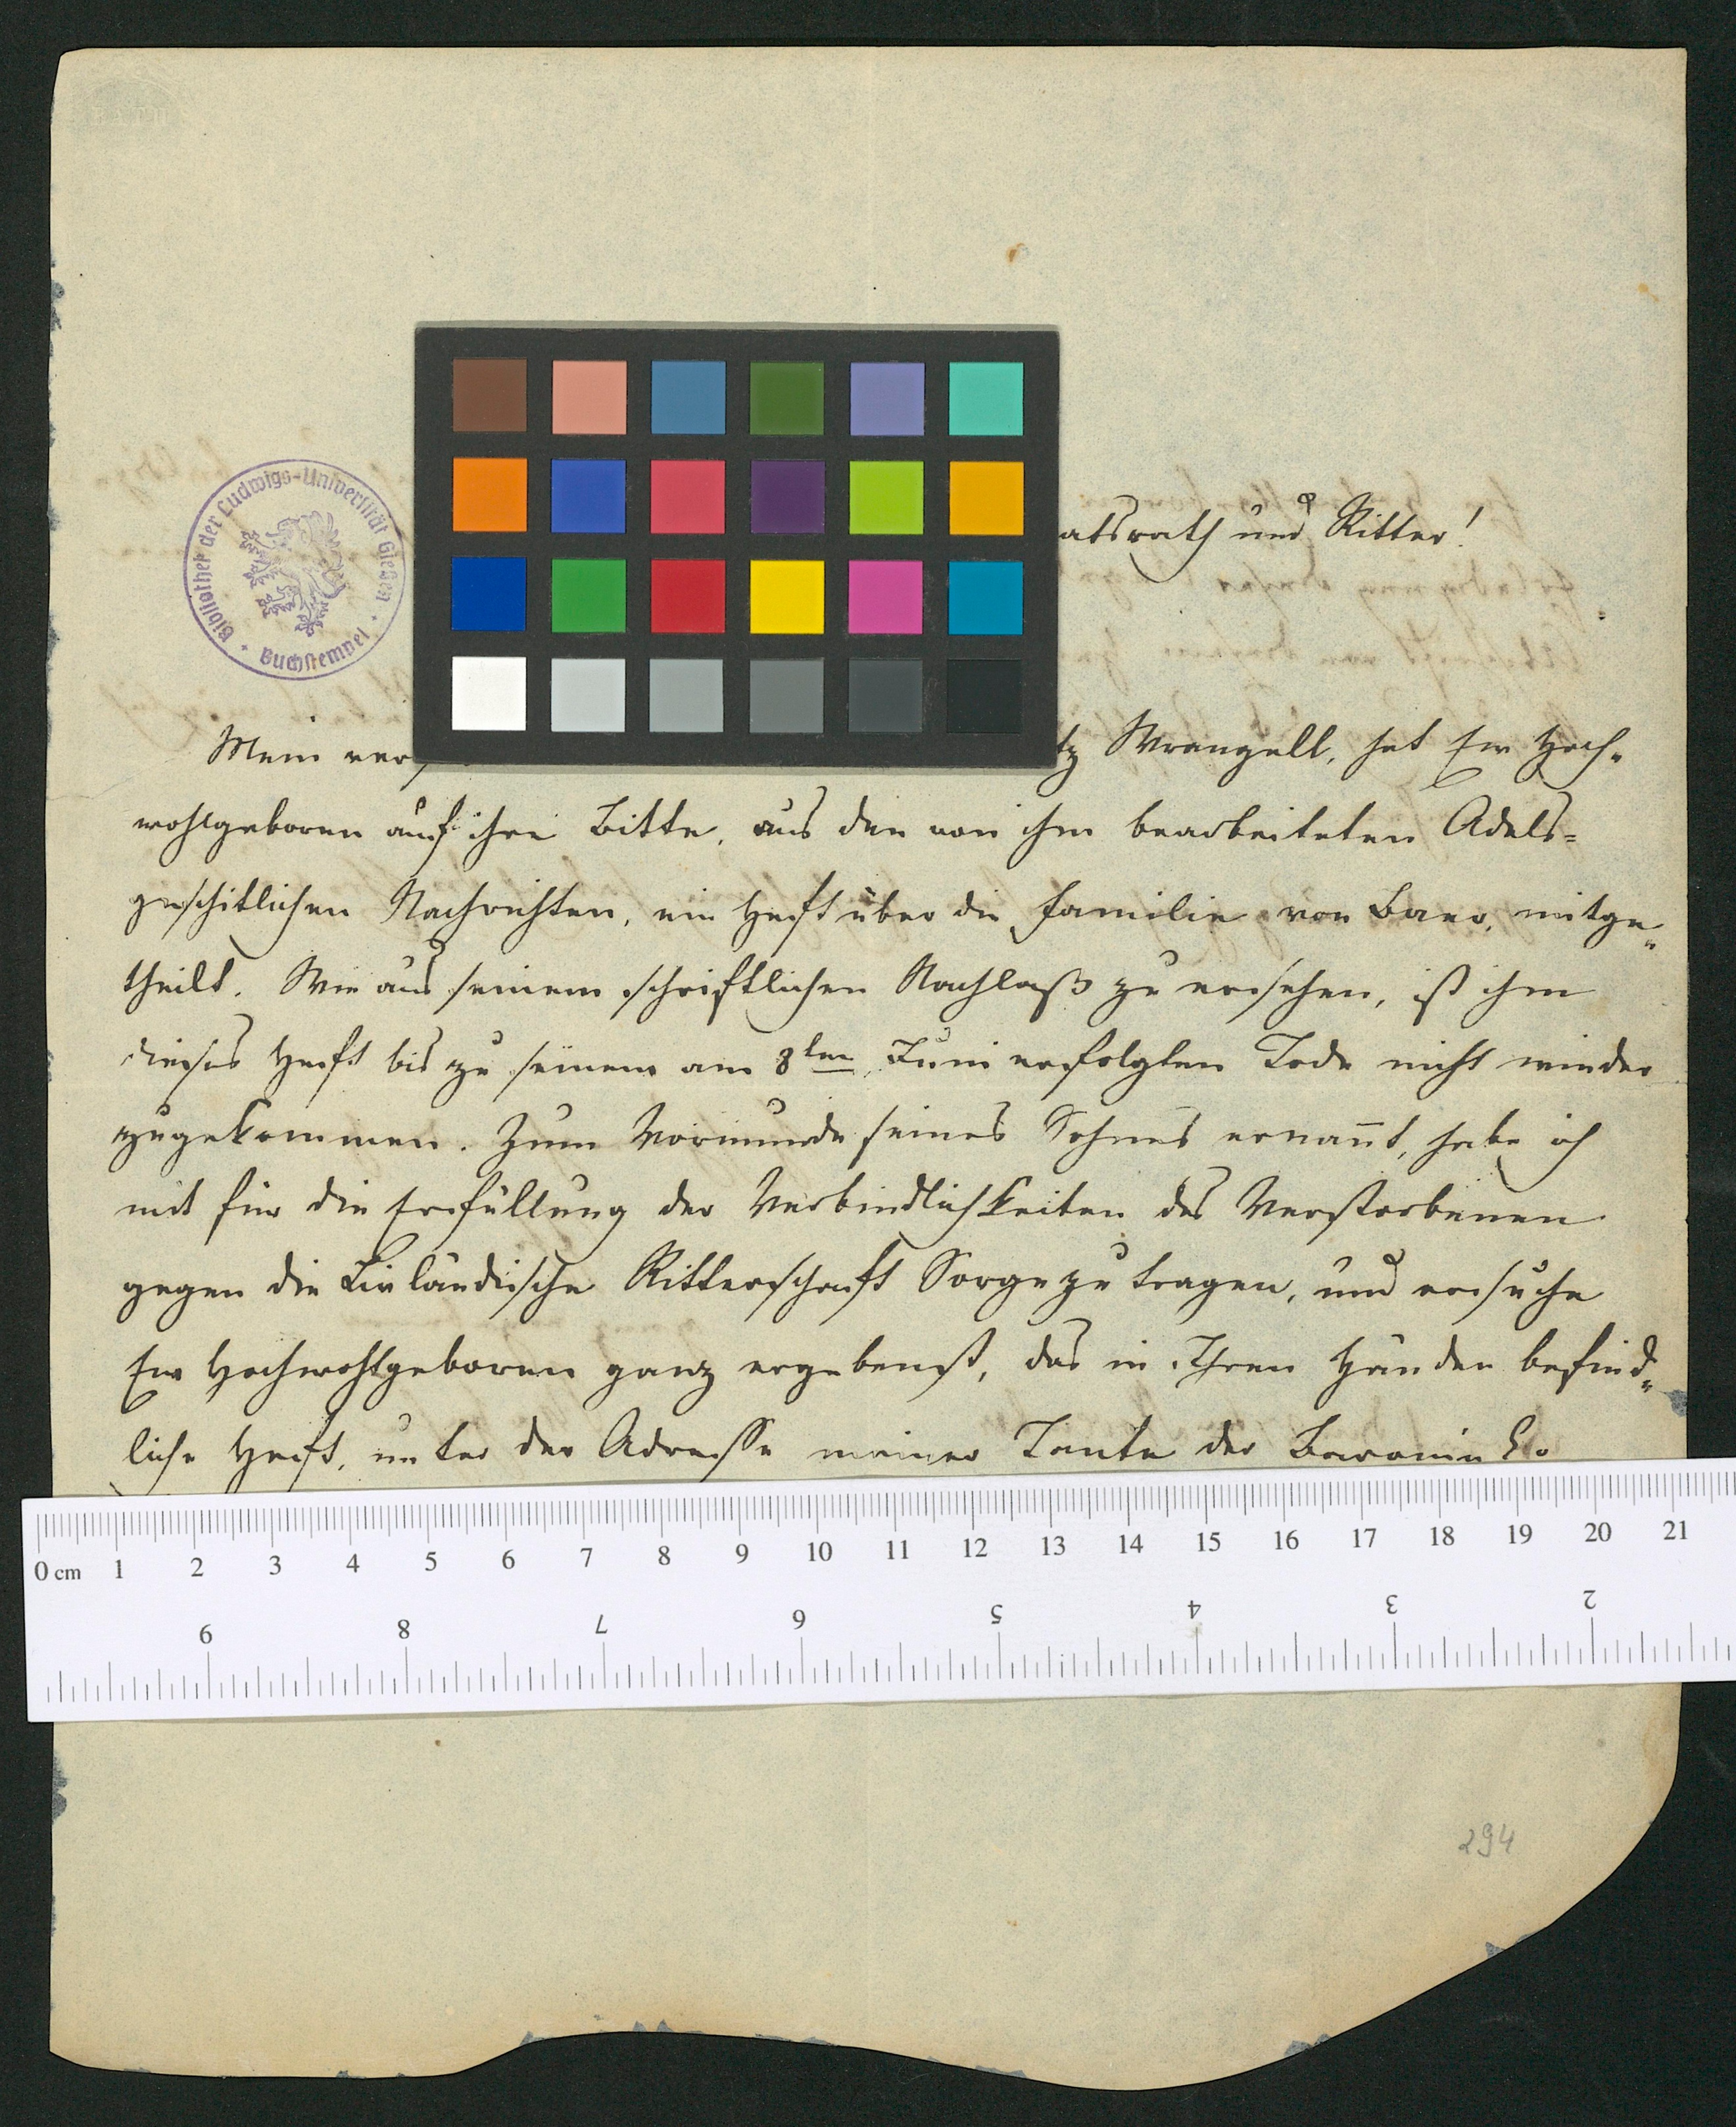 Bibliothek der Ludwigs-Universität Gießen
Buchstempel
atsrath und Ritter!
Mein ver
tz Wrangell, hat Ew Hoch-
wohlgeboren auf ihre Bitte, aus den von ihm bearbeiteten Adels=
geschitlichen Nachrichten, ein Heft über die Familie von Baer, mitge-
theilt. Wie aus seinem schriftlichen Nachlaß zu ersehen, ist ihm
dieses Heft bis zu seinem am 8ten Juni erfolgten Tode nicht wieder
zugekommen. Zum Vormunde seines Sohnes ernañt, habe ich
mit für die Erfüllung der Verbindlichkeiten des Verstorbenen
gegen die Livländische Ritterschaft Sorge zu tragen, und ersuche
Ew Hochwohlgeboren ganz ergebenst, das in Ihren Händen befind-
liche Heft, unter der Adresse meiner Tante der Baronin
0 cm 1 2 3 4 5 6 7 8 9 10 11 12 13 14 15 16 17 18 19 20 21
9 8 7 6 5 4 3 2
294